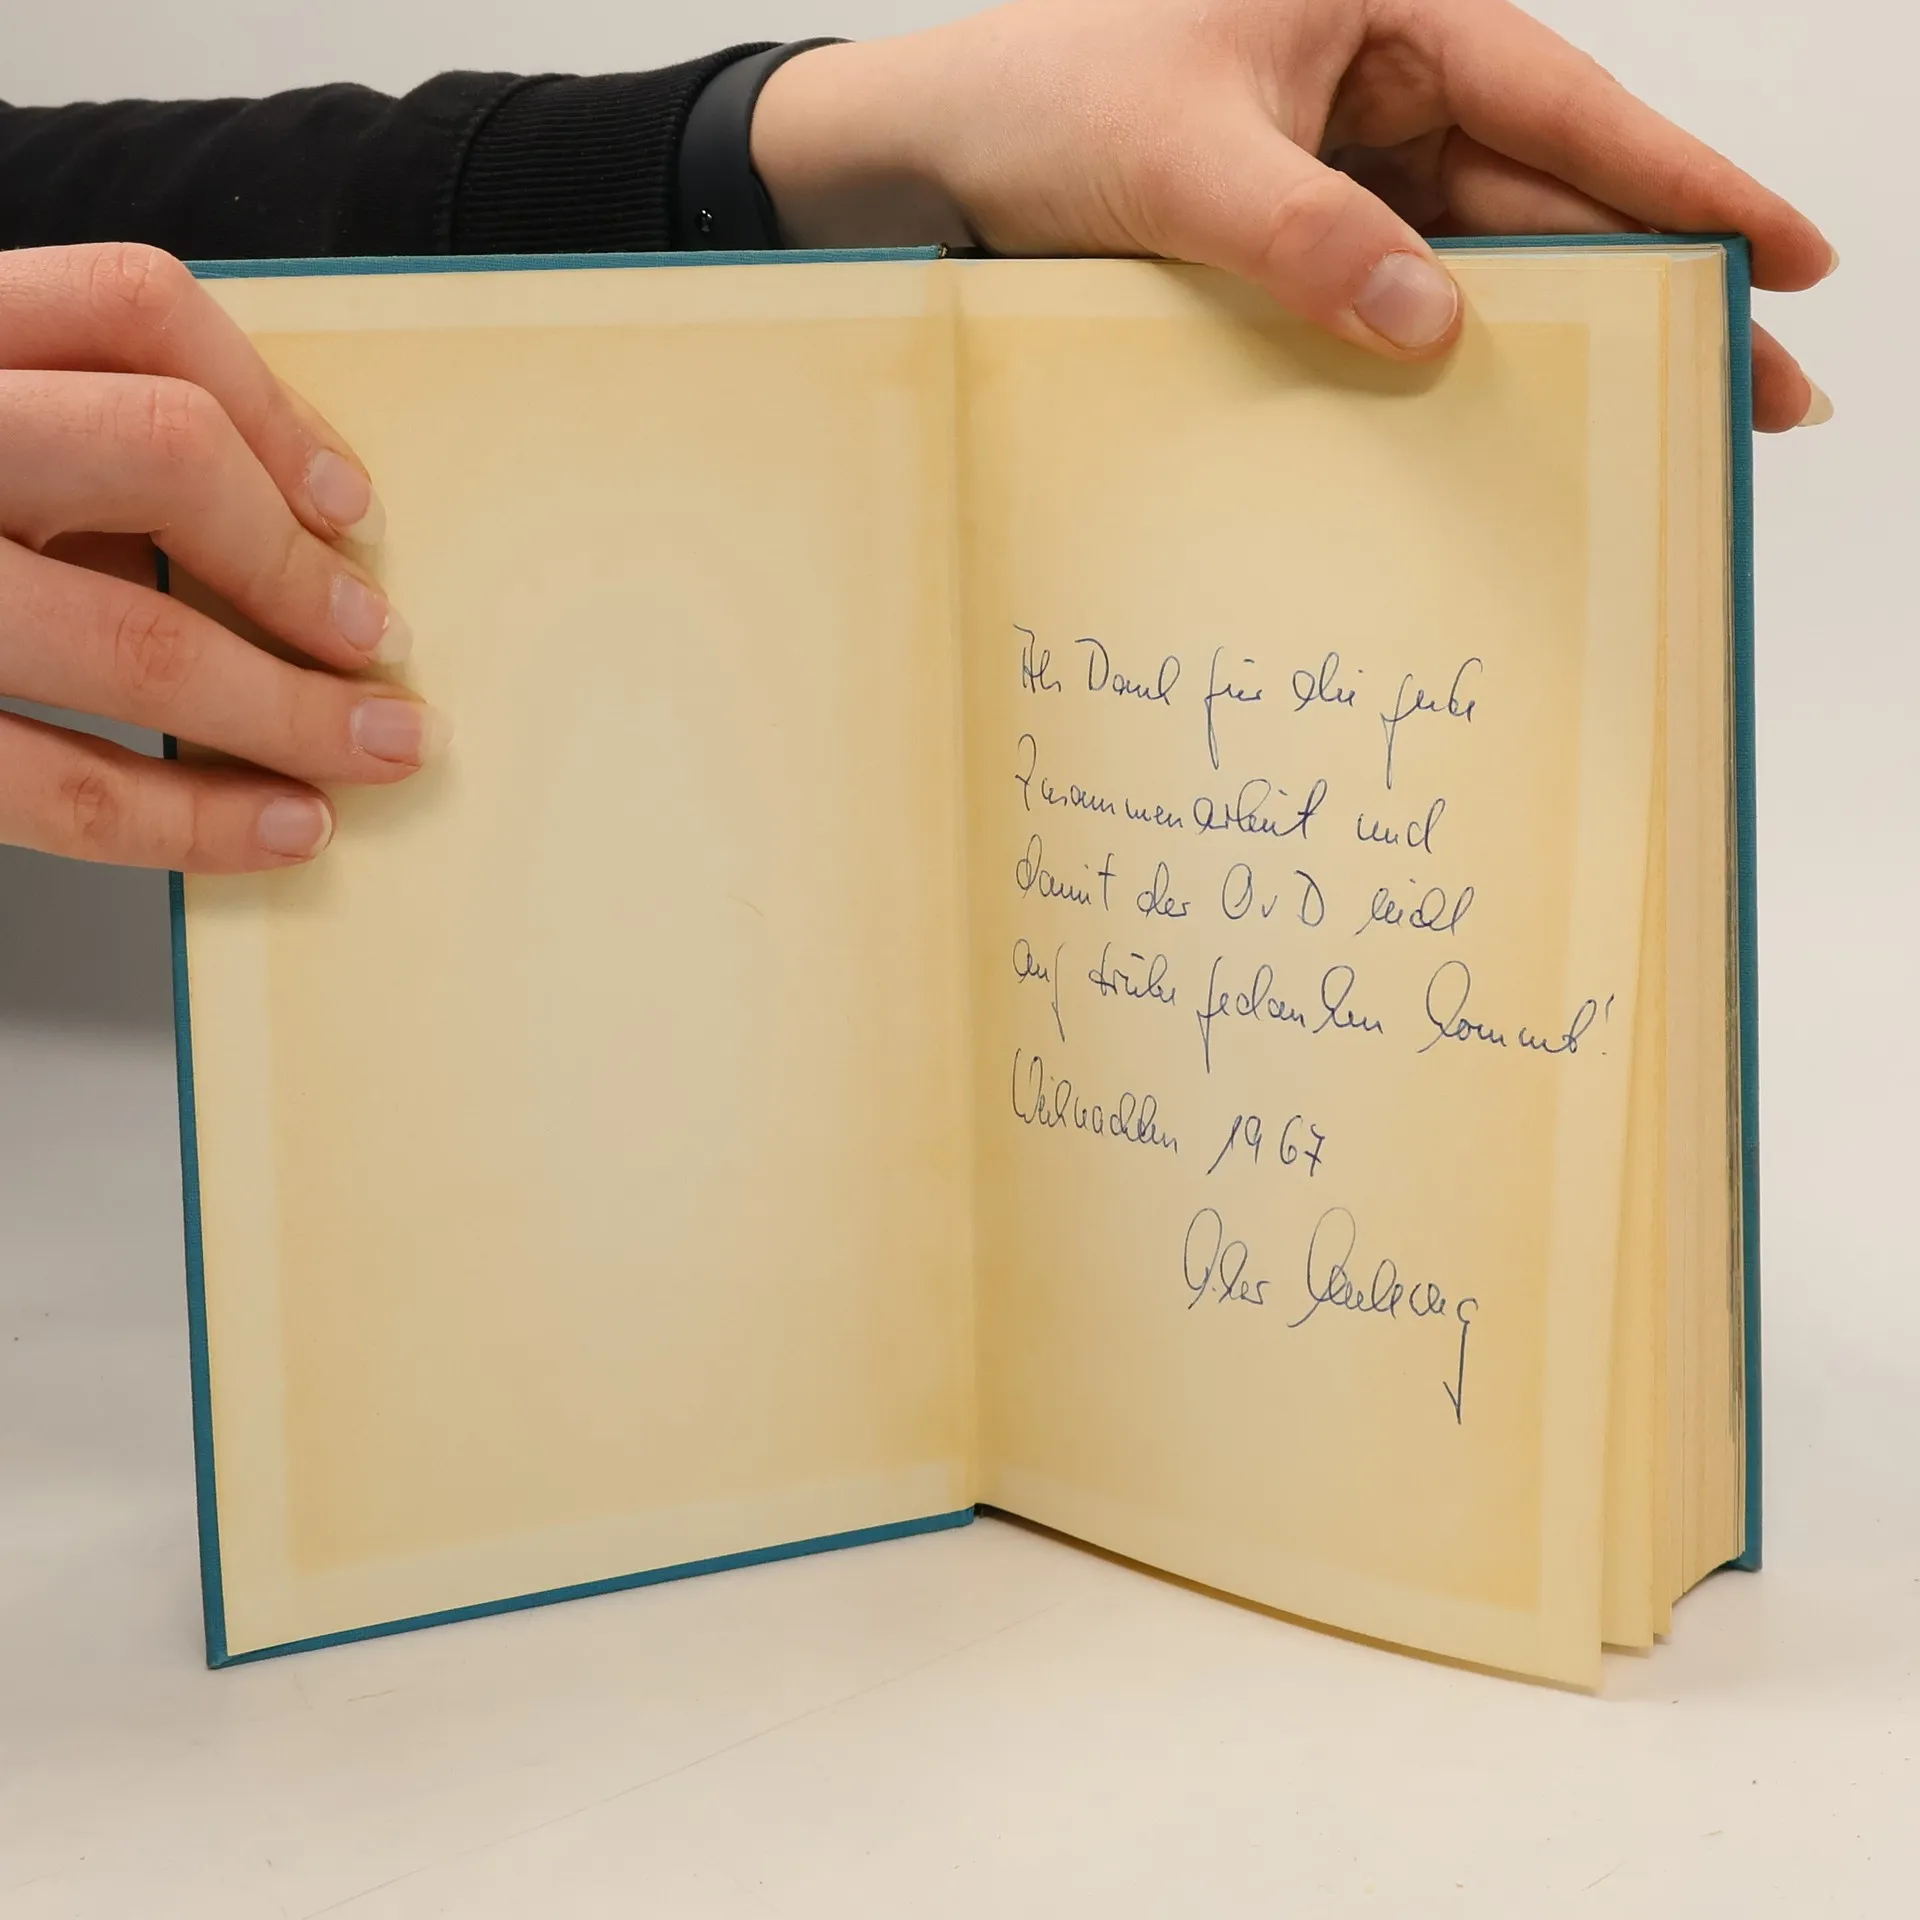 Als Dank für die gute
Zusammenarbeit und
damit der OvD nicht
auf trübe Gedanken kommt!
Weihnachten 1967